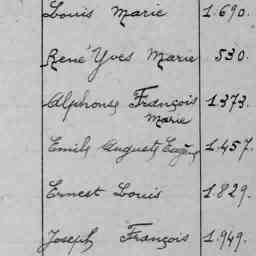 Louis Marie 1.690.
René Yves Marie 530.
Alphonse François 1.373.
Marie
Emile Auguste Eugène 1.457.
Ernest Louis 1.829.
Joseph François 1.949.